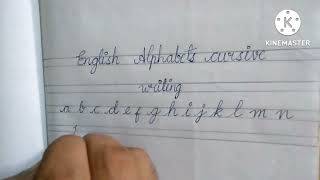 English Alphabets cursive
writing
a b c d e f g h i j k l m n
KINEMASTER